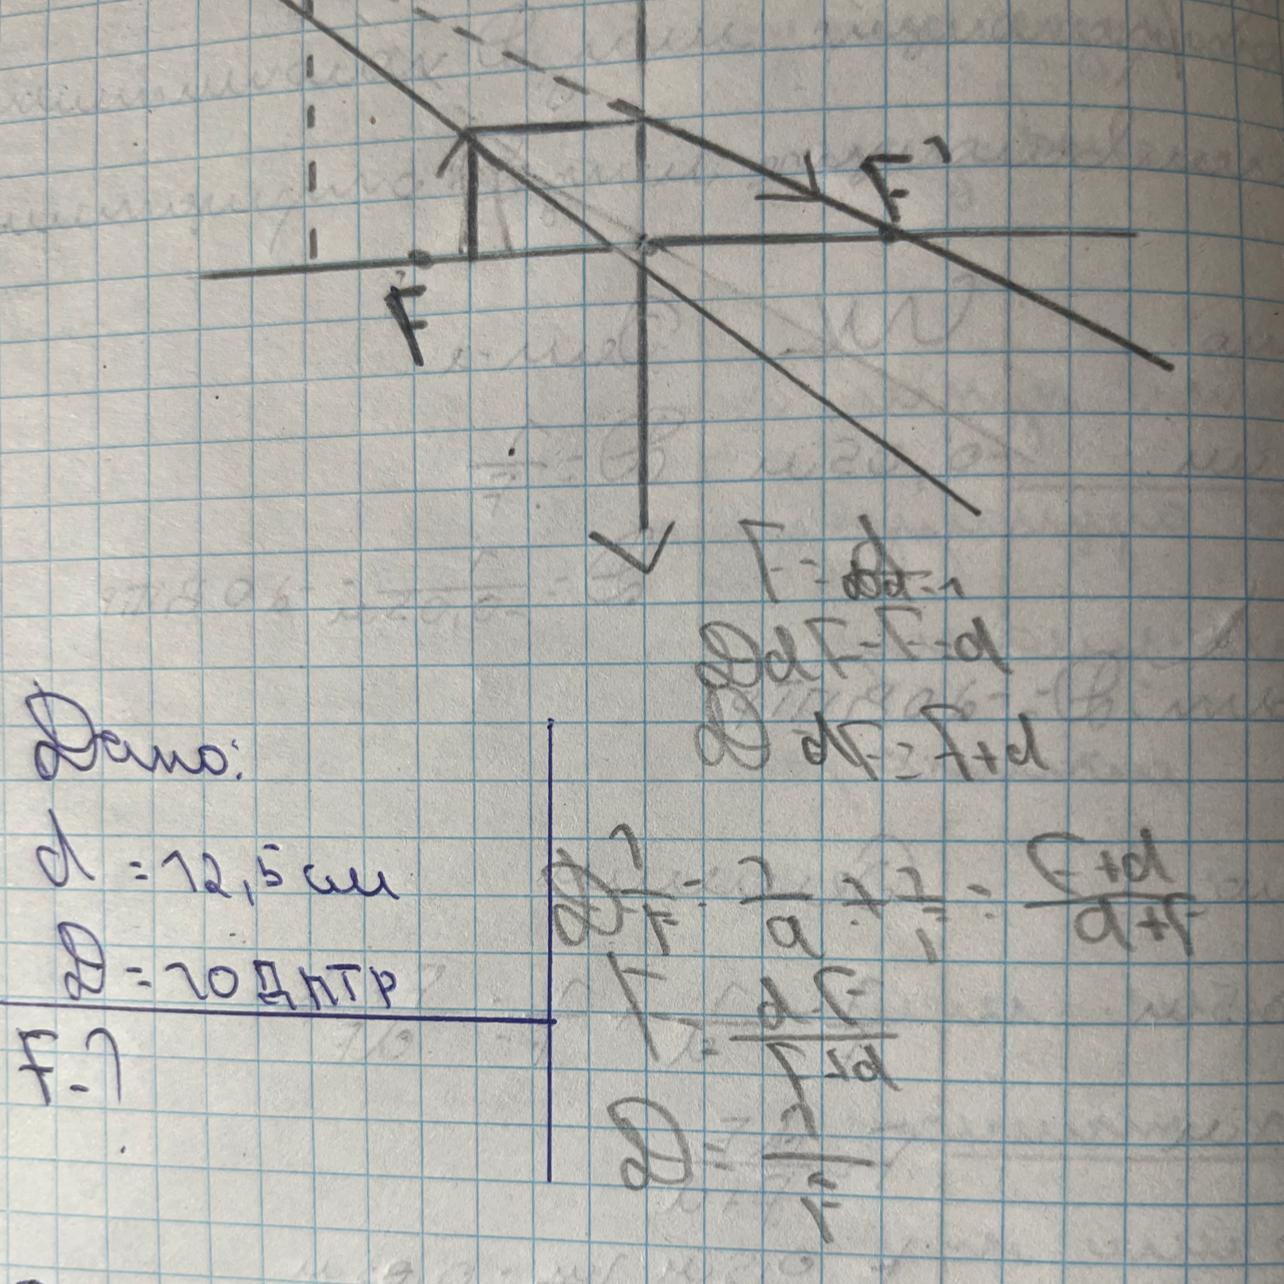 F'
F
F = d/Dd-1
DdF-F=d
D dF = F+d
Дано:
d = 12,5 см
D = 10 Дптр
F-?
D 1/F = 1/d + 1/F = F+d/d+F
F = dF/F+d
D = 1/F